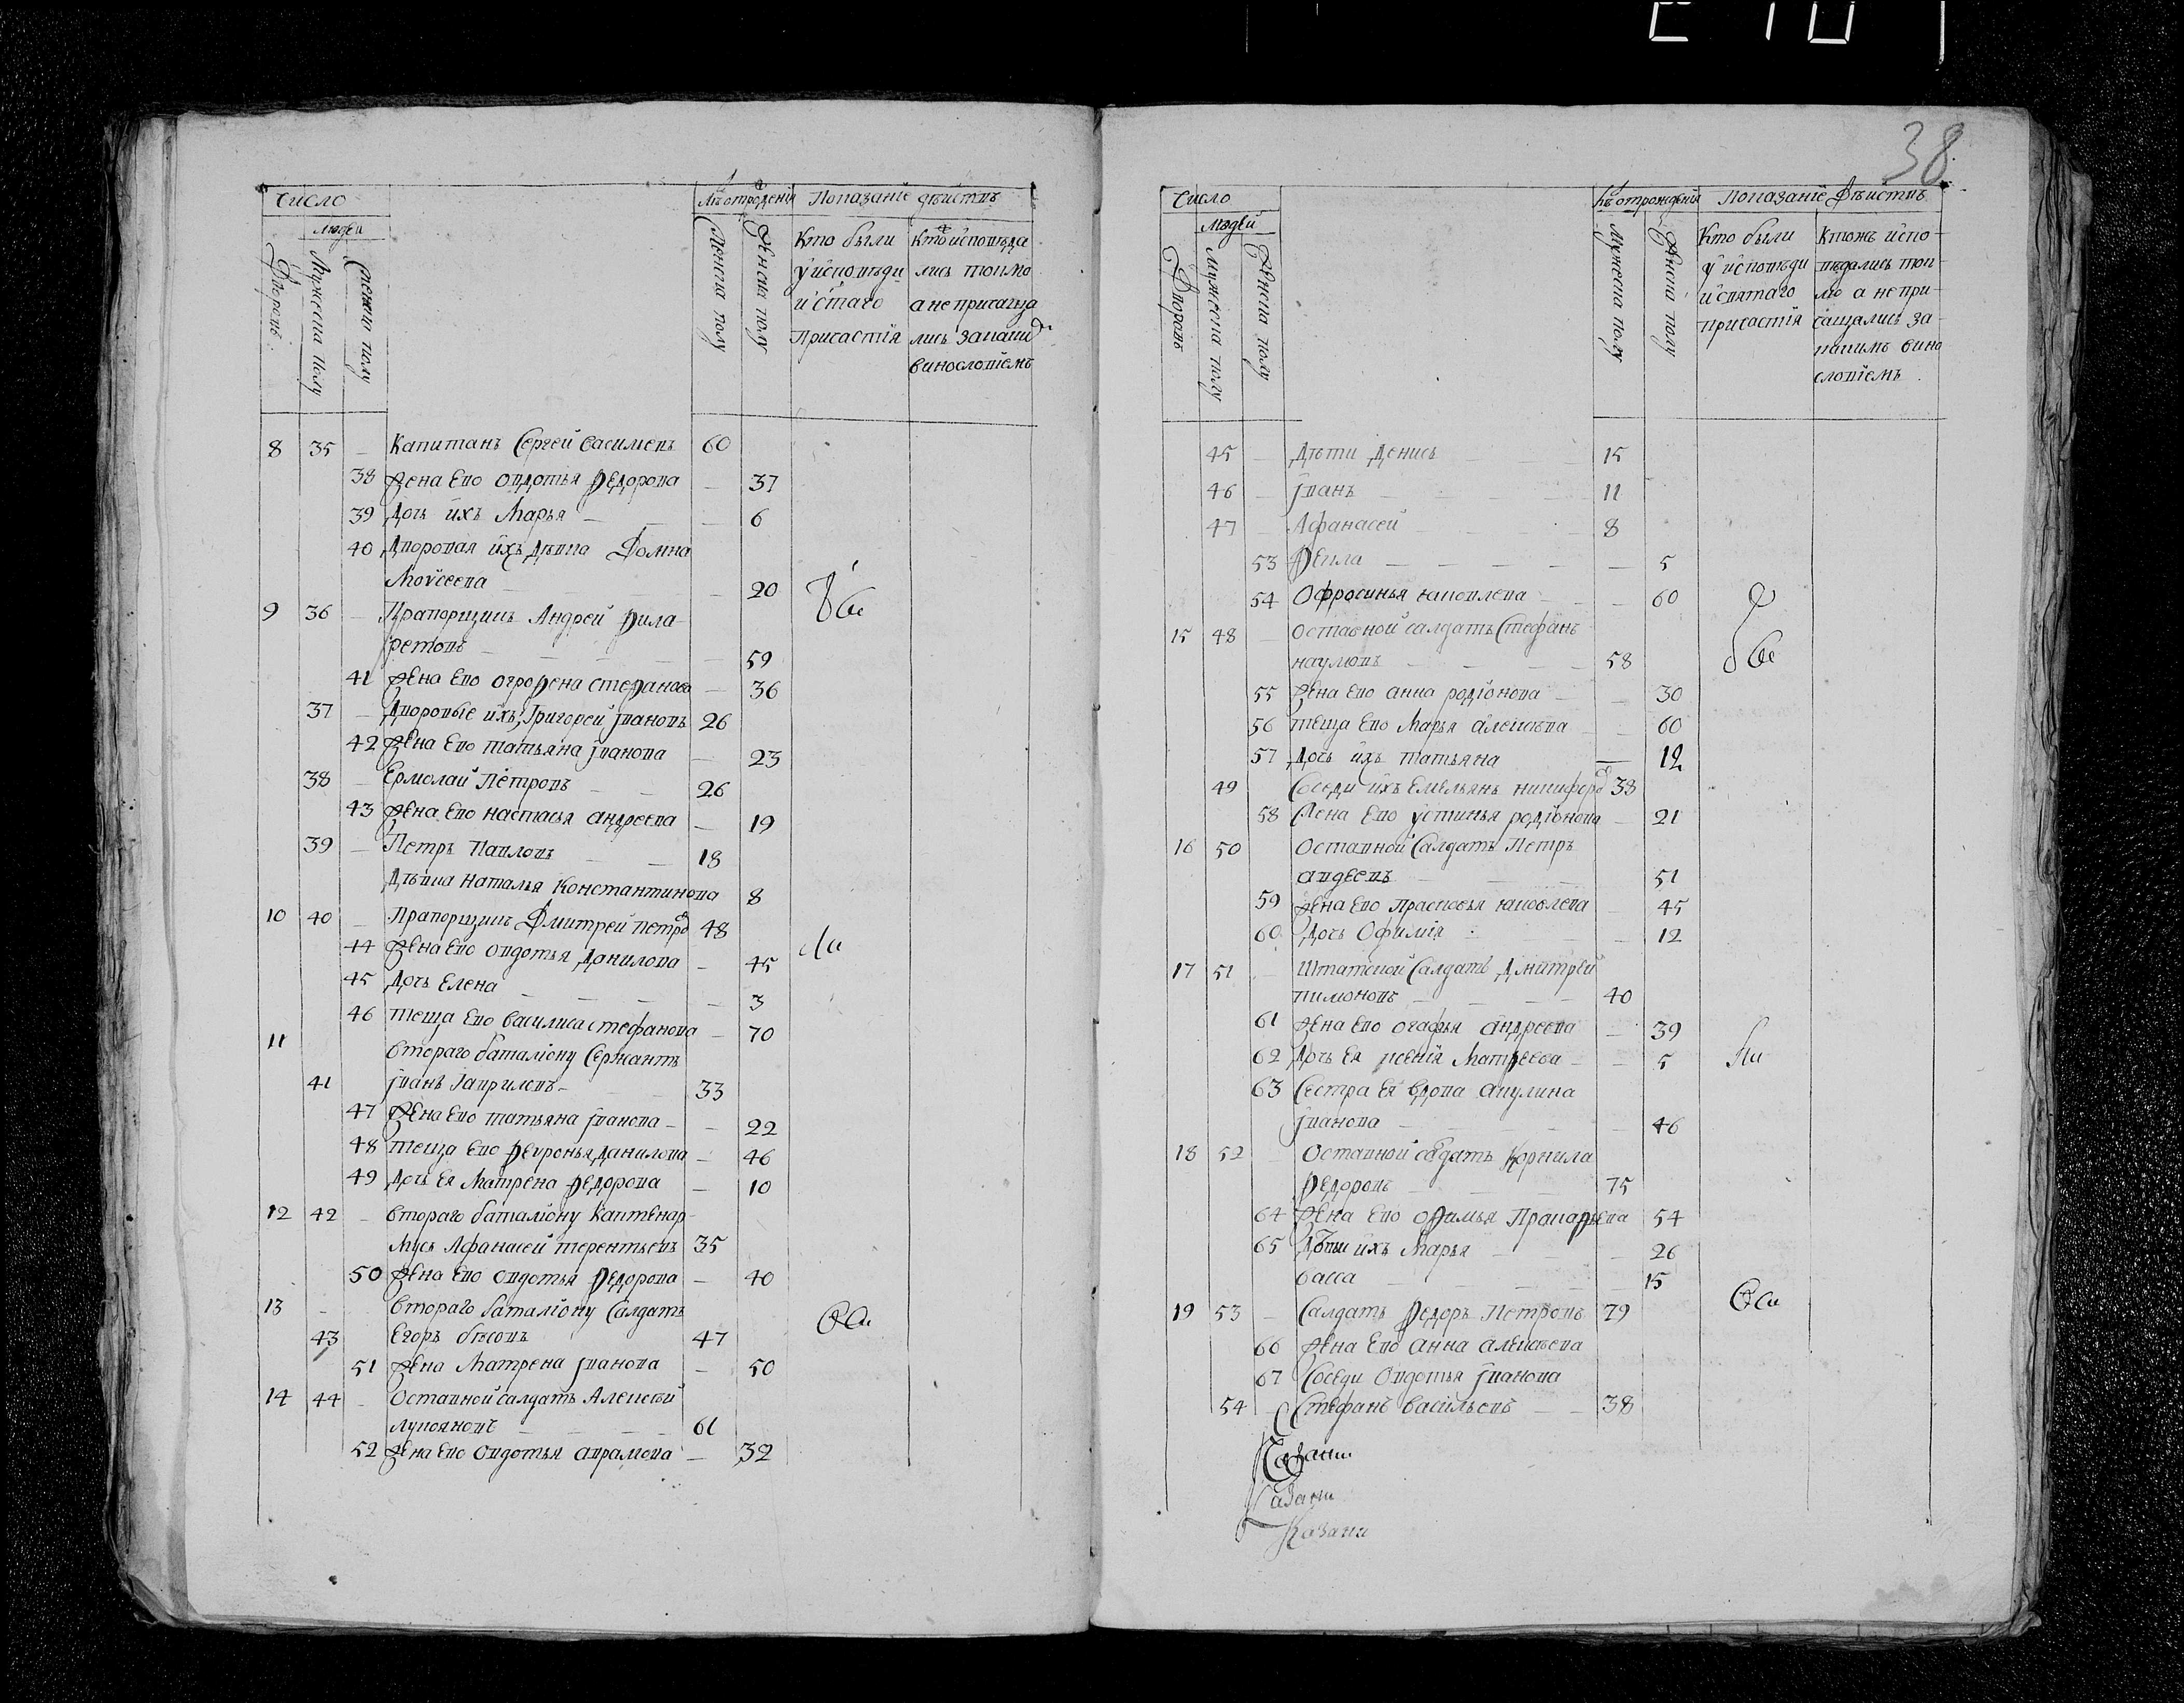 38
Число
людей
Дворовъ
Мужеска полу
Женска полу
Лѣ отрождения
Мужеска полу
Женска полу
Показанїе дѣйствъ
Кто были
у исповѣди
и стаго
Причастїя
Ктожъ исповѣда
лись токмо
а не причаща
лись за каким
винословїемъ
8 35 — Капитанъ Сергей Василиевъ 60
38 Жена Ево Овдотья Федорова — 37
39 Дочь ихъ Марья — 6
40 Дворовая ихъ Девка Домна
Моисеева — 20
Всѣ
9 36 — Прапорщикъ Андрей Фила
ретовъ — 59
41 Жена Ево Огрофена Стефанова — 36
37 — Дворовые ихъ Григорей Iвановъ 26
42 Жена Ево Татьяна Iванова — 23
38 — Ермолай Петровъ — 26
43 Жена Ево Настасья Андреева — 19
39 — Петръ Павловъ — 18
Дѣвка Наталья Константинова 8
10 40 — Прапорщикъ Дмитрей Петро 48
44 Жена Ево Овдотья Данилова — 45
45 Дочь Елена — 3
46 Теща Ево Василиса Стефанова — 70
11 Втораго баталїону Сержантъ
41 Iванъ Гаврилевъ — 33
47 Жена Ево Татьяна Iванова — 22
48 Теща Ево Февронья Данилова — 46
49 Дочь Ея Матрена Федорова — 10
12 42 — Втораго баталїону Каптенар
мусъ Афанасей Терентьевъ 35
50 Жена Ево Овдотья Федорова — 40
13 — Втораго баталїону Салдатъ
43 Егоръ бѣсовъ 47
51 Жена Матрена Iванова — 50
14 44 — Оставной салдатъ Алексѣй
Лукояновъ — 61
52 Жена Ево Овдотья Аврамова — 32
Число
Людей
Дворовъ
Мужеска полу
Женска полу
Лѣ отрожденїя
Мужеска полу
Женска полу
Показанїе Дѣйствъ
Кто были
у исповѣди
и святаго
причастїя
Ктожъ испо
вѣдались ток
мо а не при
чащались за
какимъ вино
словїемъ
45 — Дѣти Денисъ — 15
46 — Iванъ — 11
47 — Афанасей — 8
53 Фекла — 5
54 Офросинья Яковлева — 60
15 48 — Оставной салдатъ Стефанъ
Наумовъ — 58
Всѣ
55 Жена Ево Анна Родїонова — 30
56 Теща Ево Марья Алексѣева — 60
57 Дочь ихъ Татьяна — 12
49 Соседи ихъ Емельянъ Никифоро 38
58 Жена Ево Устинья Родїонова — 21
16 50 Оставной Салдатъ Петръ
Авдеевъ — 51
59 Жена Ево Прасковья Яковлева — 45
60 Дочь Офимїя — 12
17 51 — Штатской Салдатъ Дмитрей
Тимоновъ — 40
61 Жена Ево Огафья Андреева — 39
62 Дочь Ея Ксенїя Матфеева — 5
63 Сестра Ея Вдова Акулина
Iванова — 46
18 52 — Оставной Салдатъ Корнила
Федоровъ — 75
64 Жена Ево Офимья Пракофьева 54
65 Дочь ихъ Марья — 26
Васса — 15
19 53 — Салдатъ Федоръ Петровъ 79
66 Жена Ево Анна Алексѣева
67 Соседи Овдотья Iванова
54 — Стефанъ Васильевъ — 38
Казани
Казани
Казани